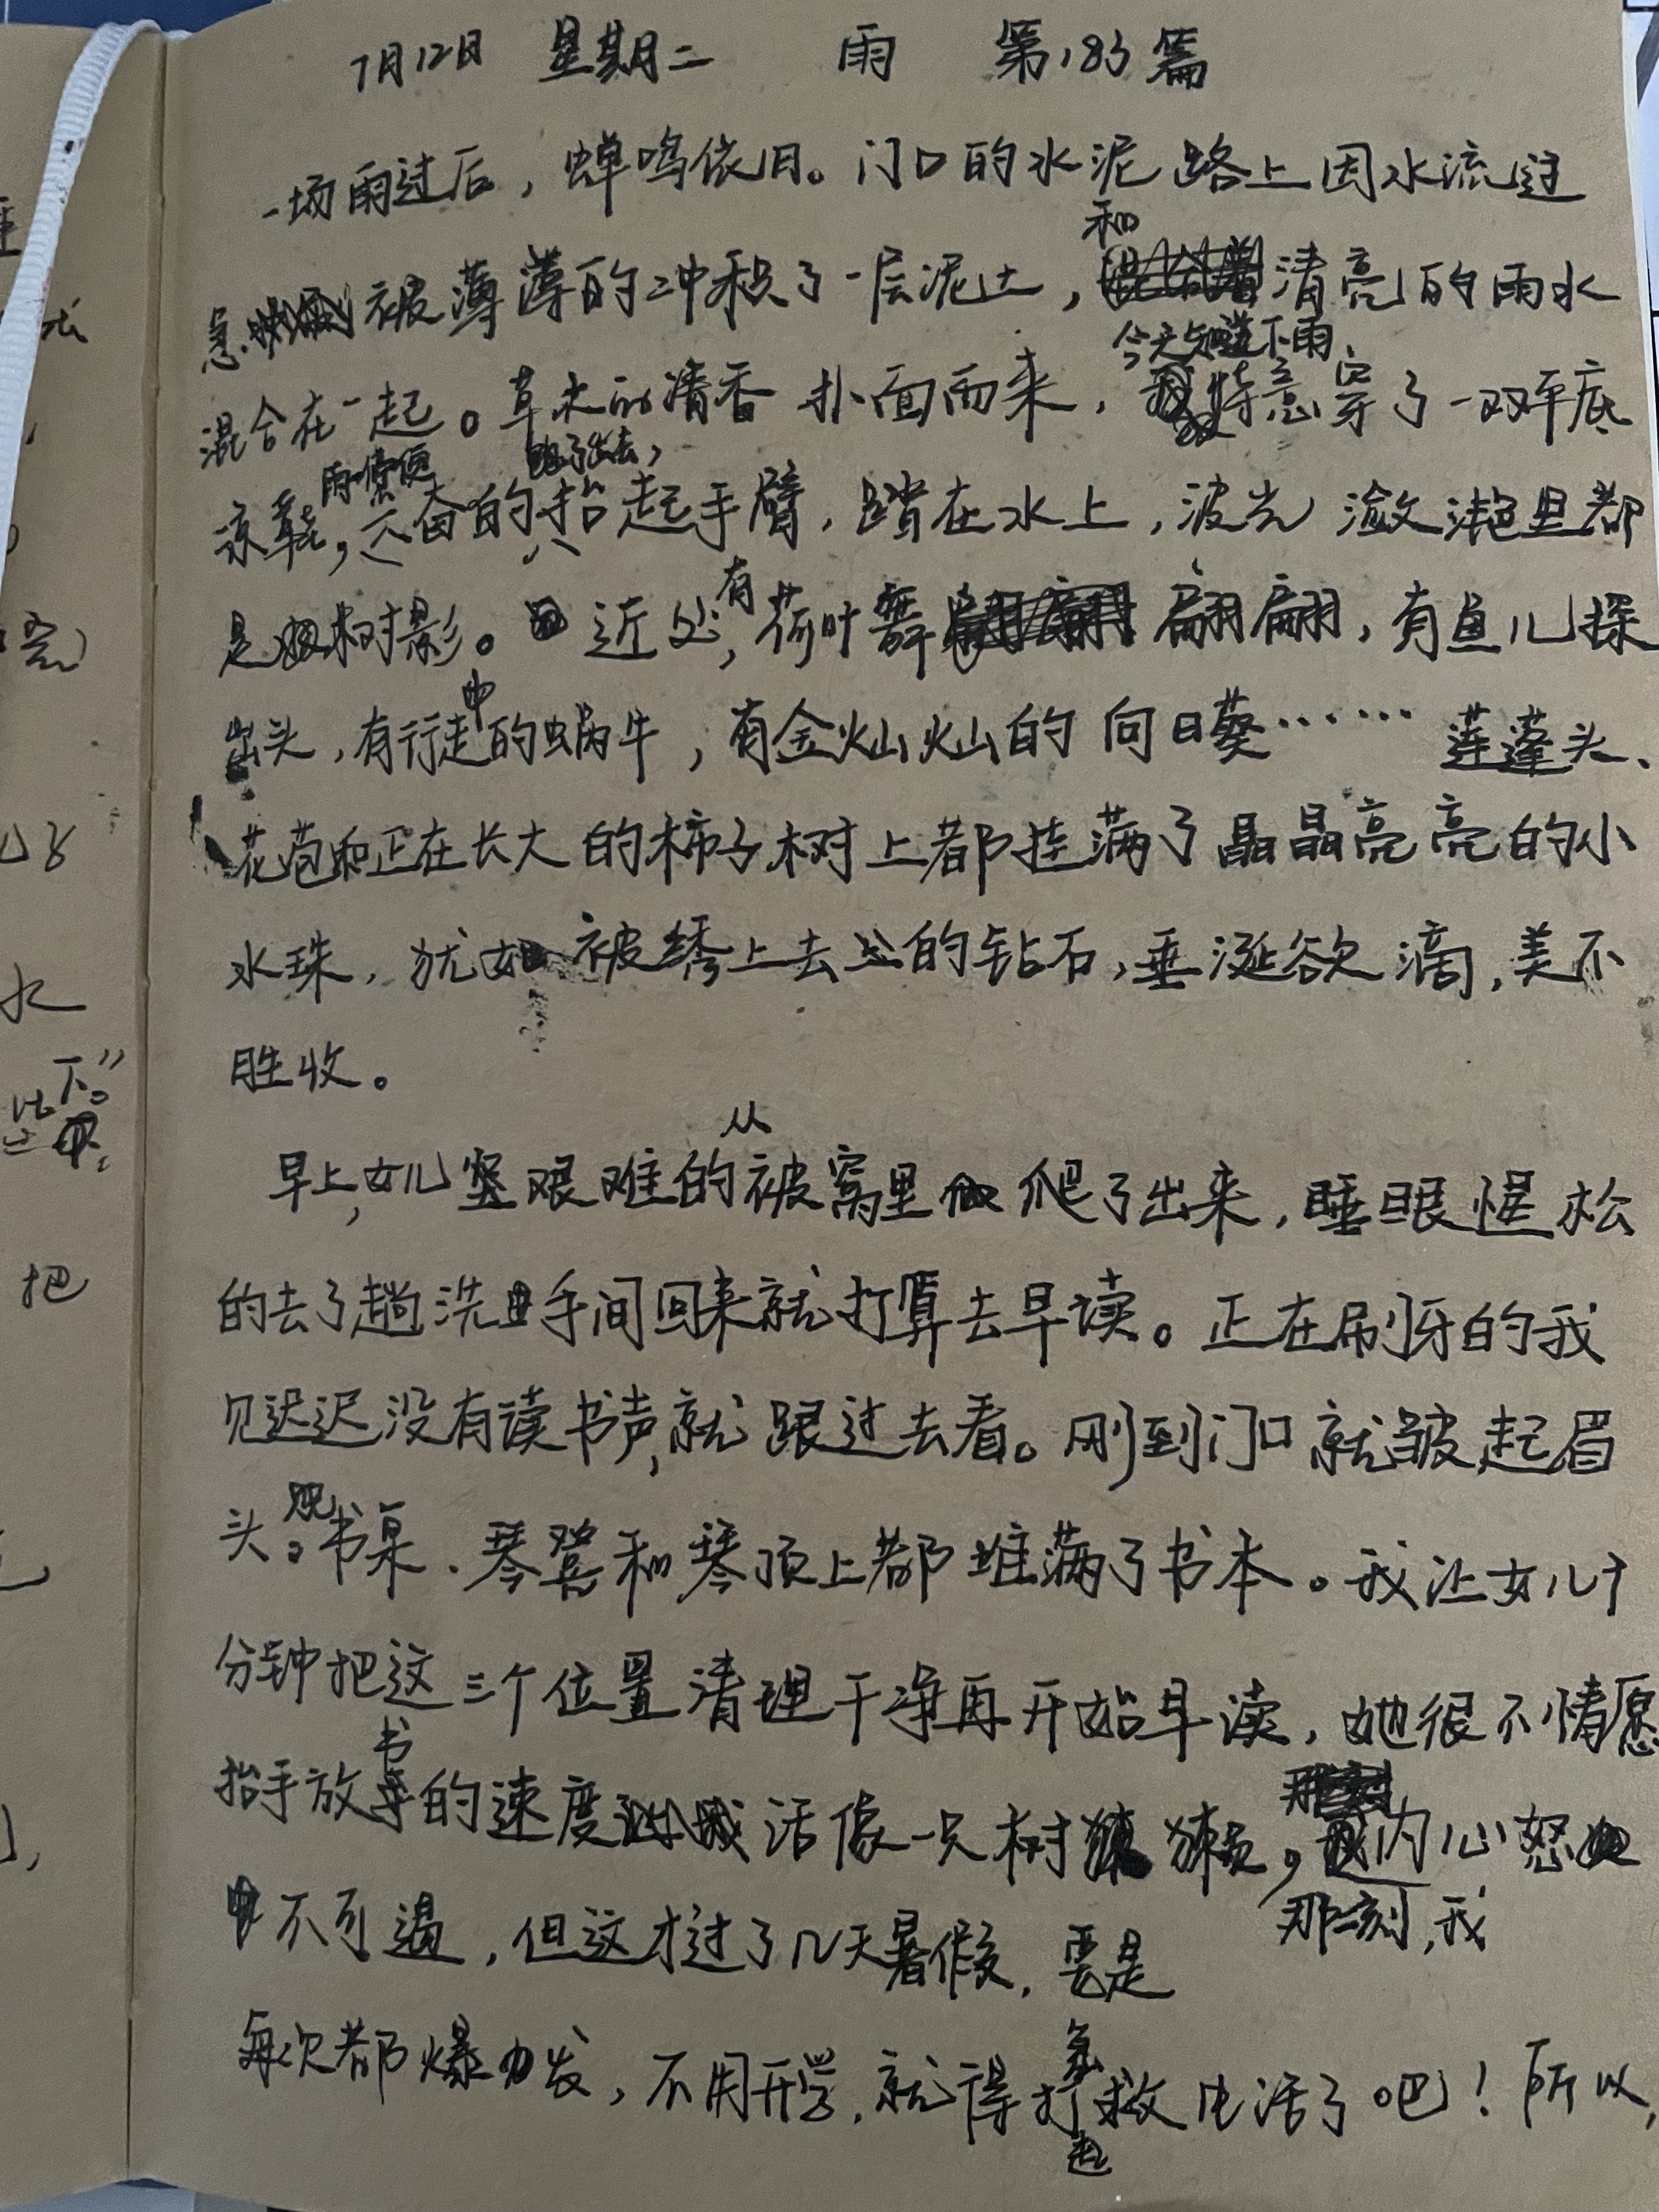 7月12日 星期二 雨 第183篇
一场雨过后，蝉鸣依旧。门口的水泥路上因水流过
急被薄薄的冲积了一层泥土，和清亮的雨水
混合在一起。草木的清香扑面而来，今天知道下雨，特意穿了一双平底
凉鞋，雨停便兴奋的跑了出去，抬起手臂，踏在水上，波光潋滟里都
是树影。近处，有荷叶舞翩翩，有鱼儿探
出头，有行走中的蜗牛，有金灿灿的向日葵……莲蓬头、
花苞和正在长大的柿子树上都挂满了晶晶亮亮的小
水珠，犹如被绣上去的钻石，垂涎欲滴，美不
胜收。
早上，女儿艰难的从被窝里爬了出来，睡眼惺松
的去了趟洗手间回来就打算去早读。正在刷牙的我
见迟迟没有读书声，就跟过去看。刚到门口就皱起眉
头。书桌、琴凳和琴顶上都堆满了书本。我让女儿十
分钟把这三个位置清理干净再开始早读，她很不情愿
抬手放书的速度活像一只树獭，那一刻，我内心怒
不可遏，但这才过了几天暑假，要是
每次都爆发，不用开学，就得打急救电话了吧！所以，
下。”
把
水